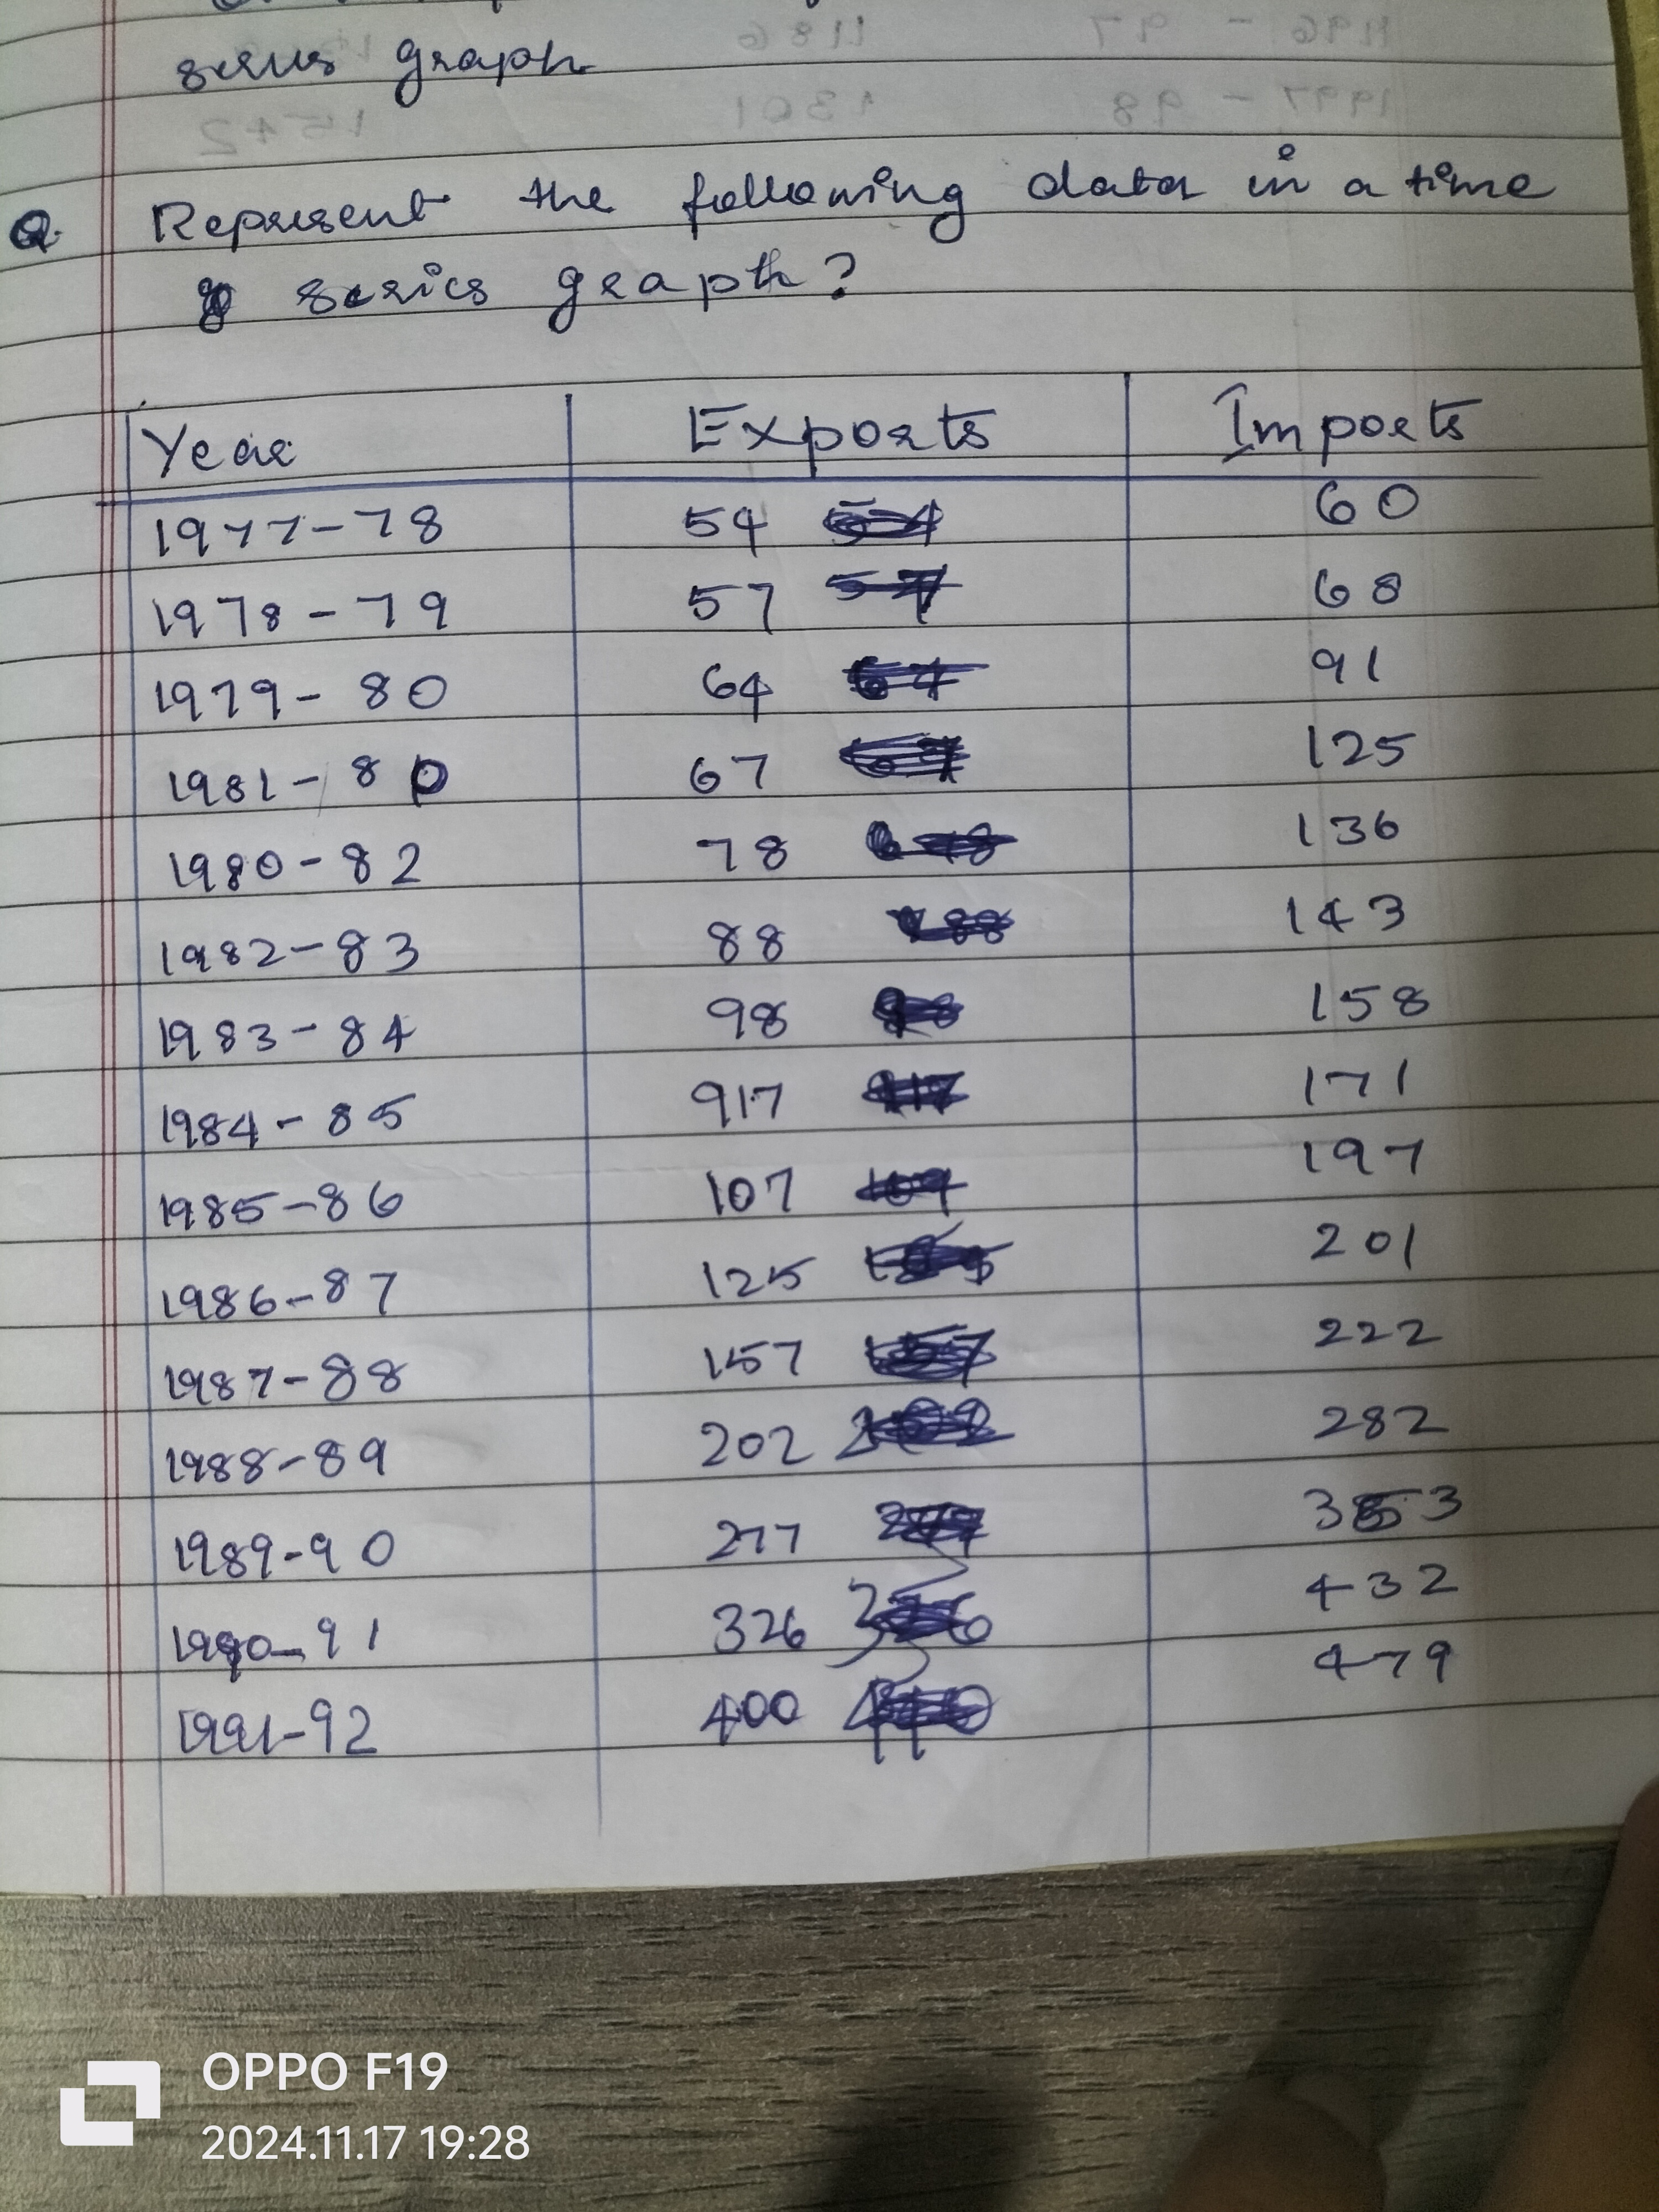 series graph
Q. Represent the following data in a time
series graph?
Year Exports Imports
1977-78 54 60
1978-79 57 68
1979-80 64 91
1981-80 67 125
1980-82 78 136
1982-83 88 143
1983-84 98 158
1984-85 917 171
1985-86 107 197
1986-87 125 201
1987-88 157 222
1988-89 202 282
1989-90 277 353
1990-91 326 432
1991-92 400 479
OPPO F19
2024.11.17 19:28